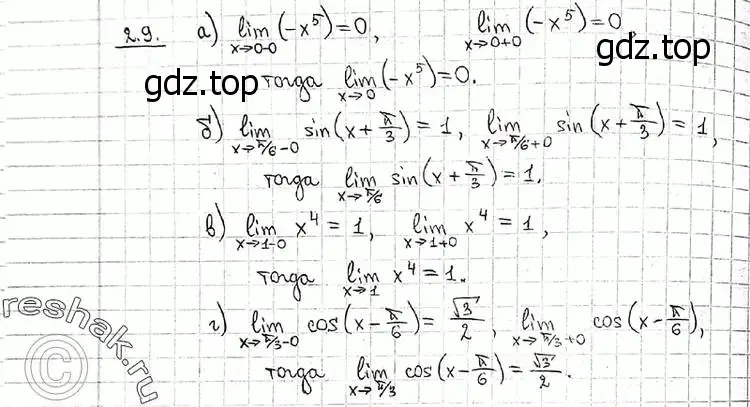 2.9. а) lim x→0-0 (-x⁵) = 0, lim x→0+0 (-x⁵) = 0
gdz.top gdz.top
тогда lim x→0 (-x⁵) = 0.
б) lim x→π/6-0 sin(x + π/3) = 1, lim x→π/6+0 sin(x + π/3) = 1,
тогда lim x→π/6 sin(x + π/3) = 1.
в) lim x→1-0 x⁴ = 1, lim x→1+0 x⁴ = 1,
тогда lim x→1 x⁴ = 1.
г) lim x→π/3-0 cos(x - π/6) = √3/2, lim x→π/3+0 cos(x - π/6),
тогда lim x→π/3 cos(x - π/6) = √3/2.
reshak.ru
©